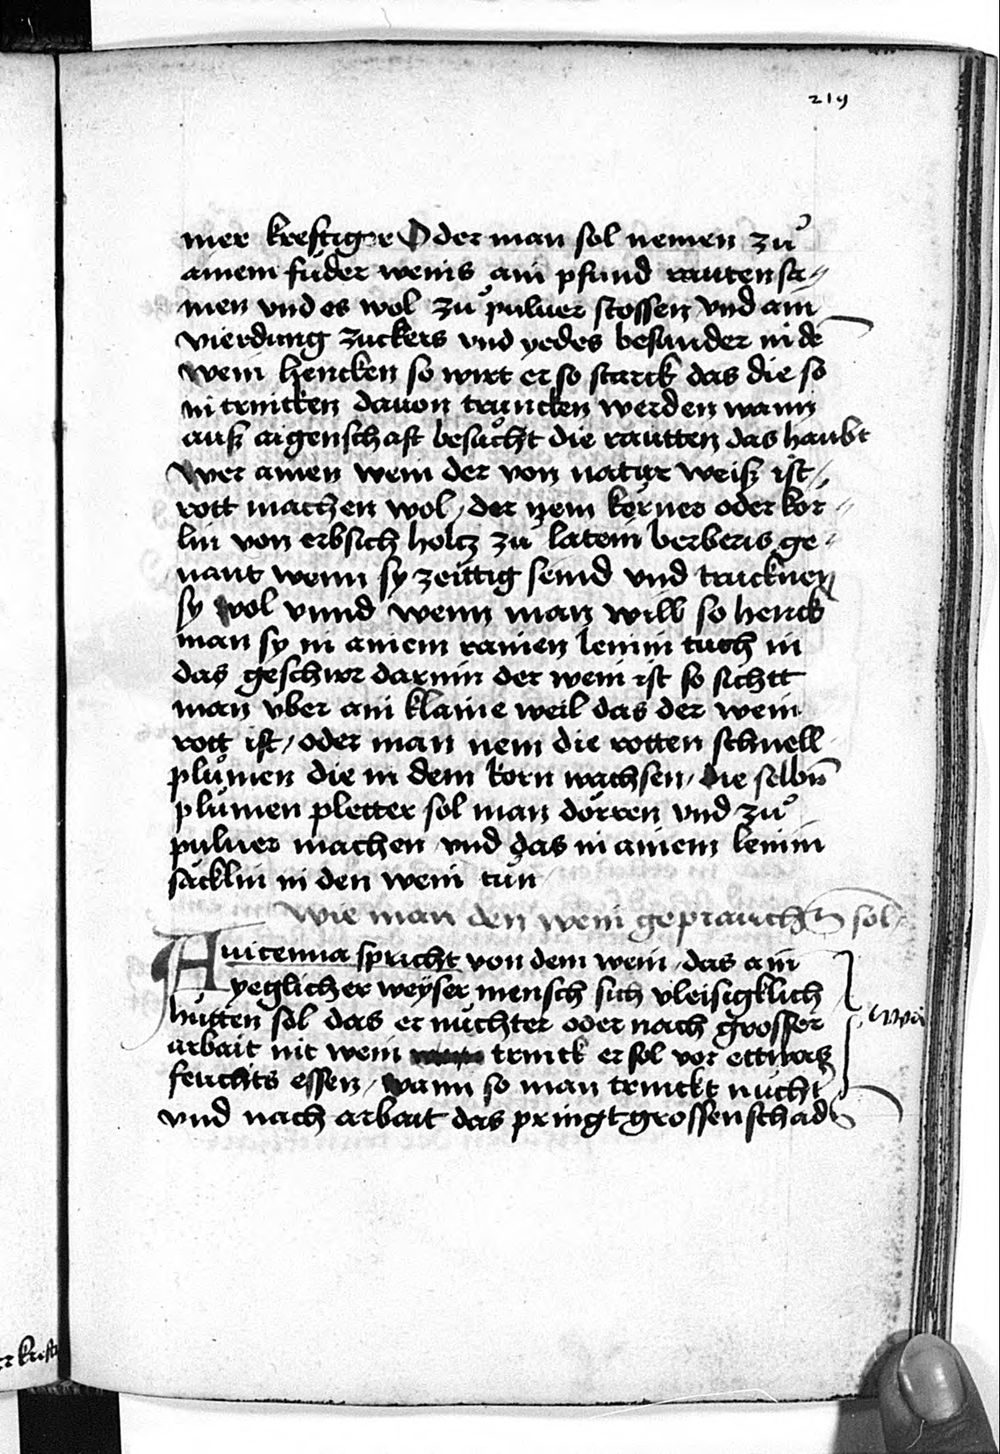 219
mer kreftiger Oder man sol nemen zuͦ
ainem fuͦder weins ain pfund rautten sa⸗
men vnd es wol zuͦ puluer stossen vnd ain
vierdung zuckers vnd yedes besunder in dē
wein hencken so wirt er so starck das die so
in trincken dauon truncken werden wann
auß aigenschaft besuͦcht die rautten das haubt
Wer ainen wein der von natur weiß ist /
rott machen wol / der nem kerner oder kor⸗
lin von erbsich holtz zuͦ latein berberis ge⸗
nant wenn sy zeittig seind vnd truckne
sy wol vnnd wenn man will so henck
man sy in ainem rainen leinin tuch in
das geschirr darinn der wein ist so sichtt
man vber ain klaine weil das der wein
rott ist / oder man nem die rotten schnell
pluͦmen die in dem korn wachsen / die selbn̄
pluͦmen pletter sol man doͤrren vnd zuͦ
puluer machen vnd das in ainem leinin
saͤcklin in den wein tuͦn
Wie man den wein geprauchen sol /
Auicenna spricht von dem wein / das ain
yeglicher weyser mensch sich vleisigklich
huͤtten sol das er nuͤchter oder nach grosser
arbait nit wein trinck er sol vor ettwas
feuchts essen / wann so man trinckt nuͤcht
vnd nach arbait das pringt grossen schadn